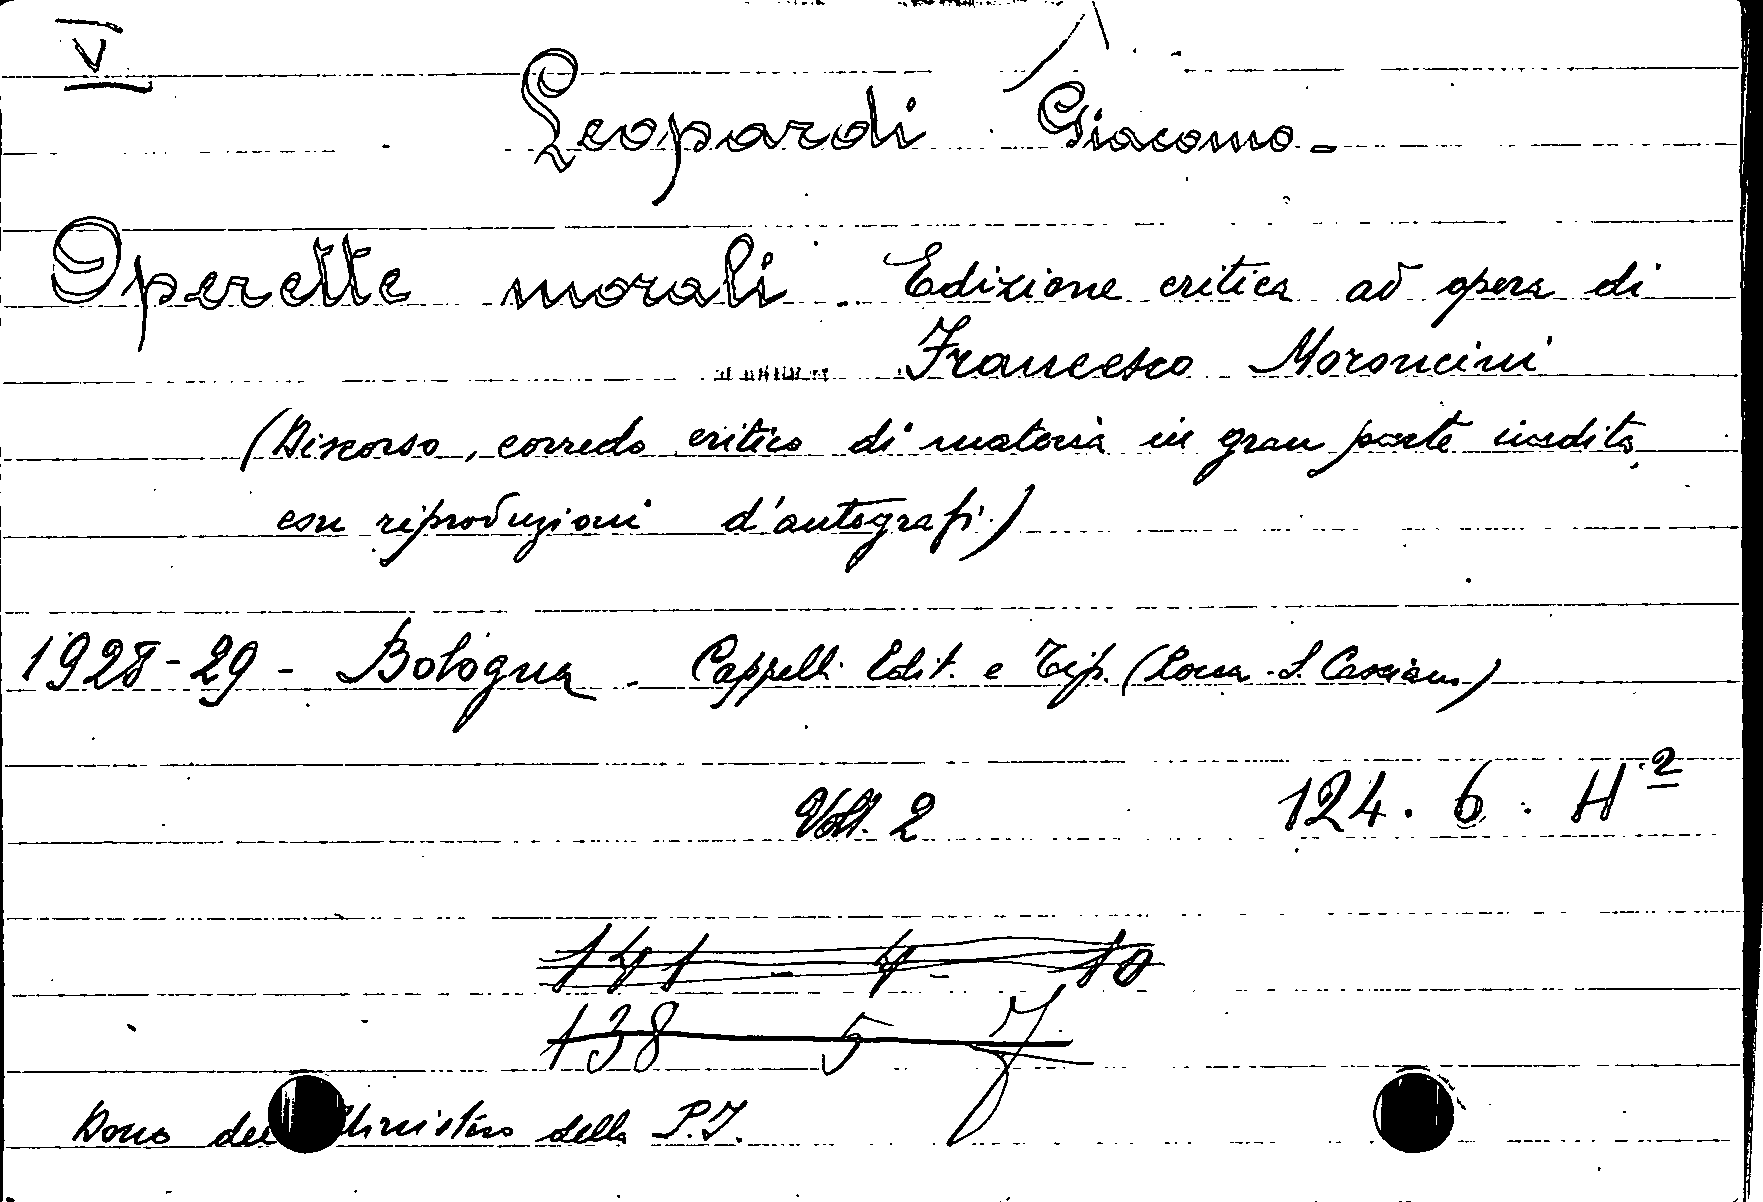 V
Leopardi Giacomo -
Operette morali. Edizione critica ad opera di
Francesco Moroncini
(Discorso, corredo critico di materia in gran parte inedita,
con riproduzioni d'autografi.)
1928-29 - Bologna - Cappelli Edit. e Tip. (Rocca S. Casciano)
Voll. 2 124. 6. H²
141 - 4 - 10
138 5 7
Dono del Ministero della P.I.